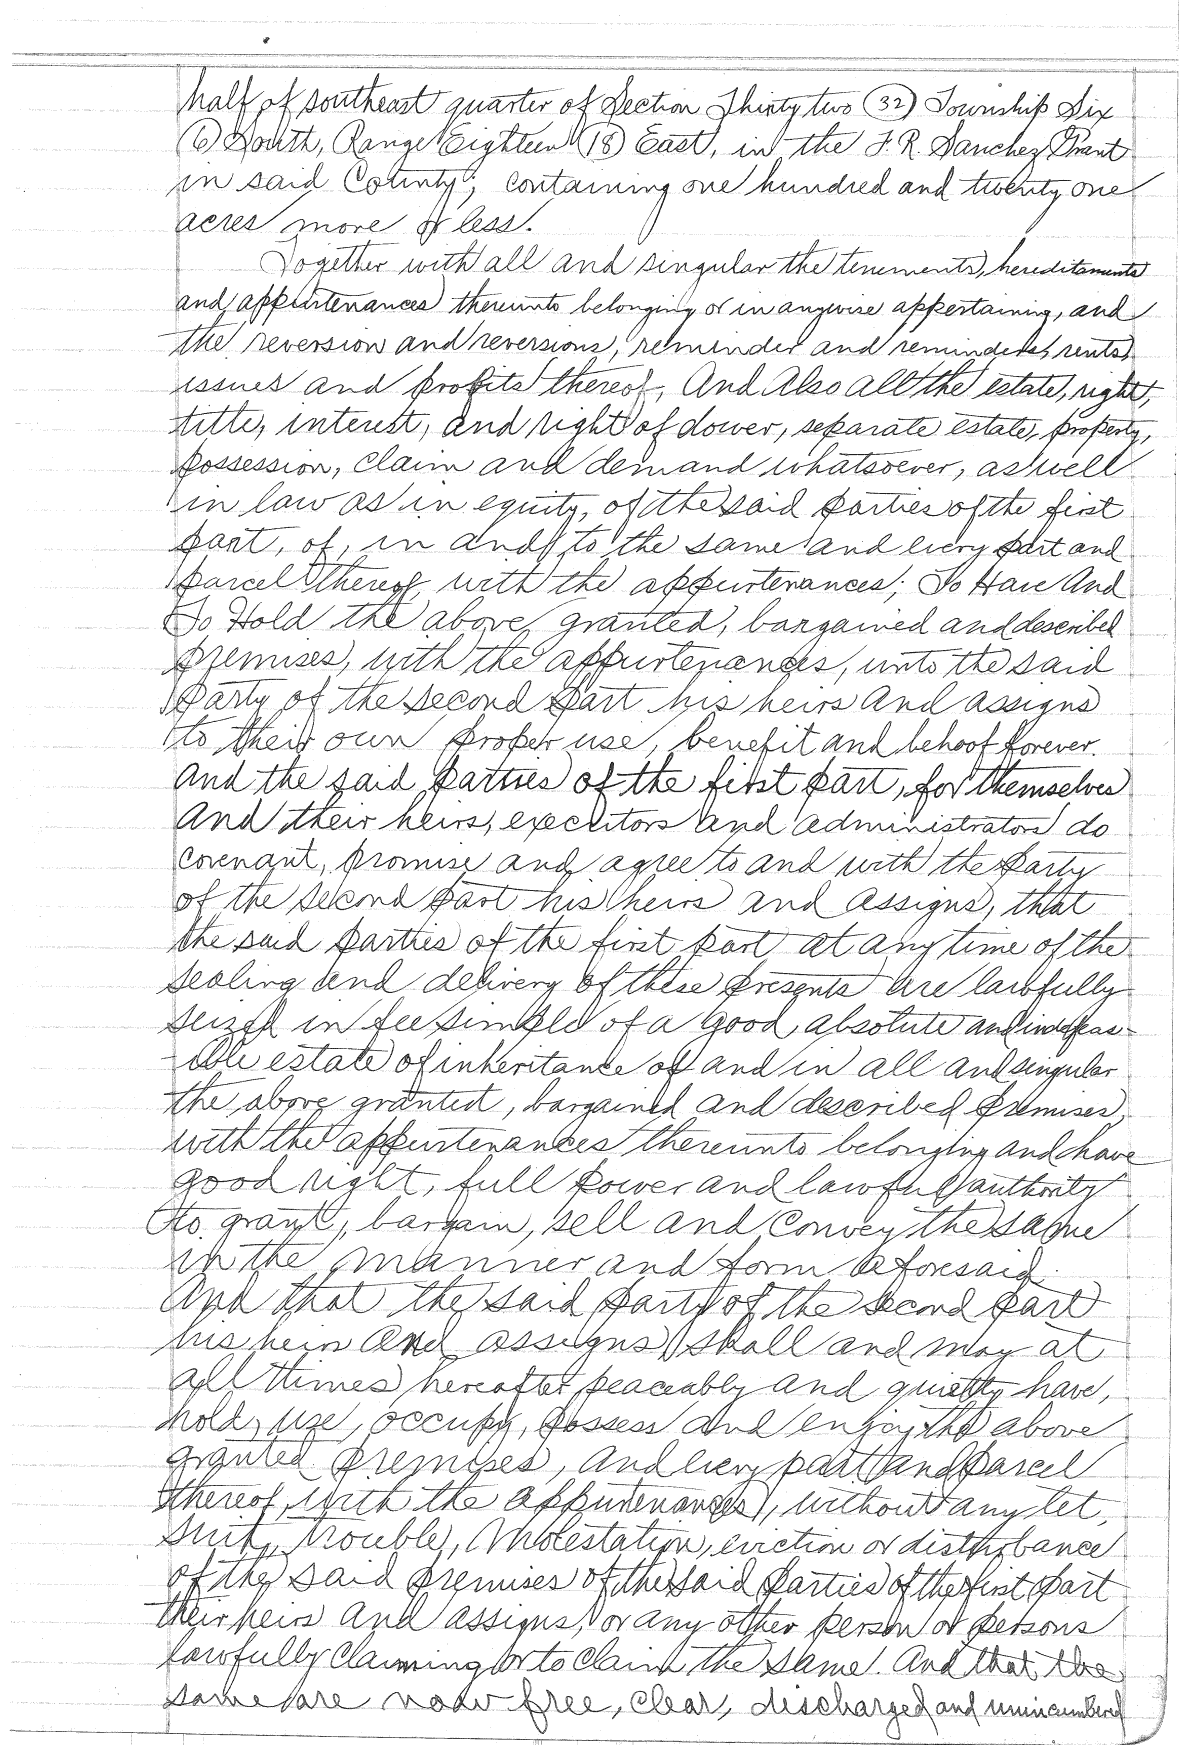 half of southeast quarter of Section Thirty two (32) Township Six
(6) South, Range Eighteen (18) East, in the F. R. Sanchez Grant
in said County; containing one hundred and twenty one
acres more or less.
Together with all and singular the tenements, hereditaments
and appurtenances thereunto belonging or in anywise appertaining, and
the reversion and reversions, reminder and reminders, rents,
issues and profits thereof, And Also all the estate, right,
title, interest, and right of dower, separate estate, property,
possession, claim and demand whatsoever, as well
in law as in equity, of the said parties of the first
part, of, in and to the same and every part and
parcel thereof with the appurtenances; To Have And
To Hold the above granted, bargained and described
premises, with the appurtenances, unto the said
party of the second part his heirs and assigns
to their own proper use, benefit and behoof forever.
And the said parties of the first part, for themselves
And their heirs, executors and administrators do
covenant, promise and agree to and with the party
of the second part his heirs and assigns, that
the said parties of the first part at any time of the
sealing and delivery of these presents are lawfully
seized in fee simple of a good, absolute and indefeas-
-ible estate of inheritance of and in all and singular
the above granted, bargained and described premises,
with the appurtenances thereunto belonging and have
good right, full power and lawful authority
to grant, bargain, sell and convey the same
in the manner and form aforesaid.
And that the said party of the second part
his heirs and assigns shall and may at
all times hereafter peaceably and quietly have,
hold, use, occupy, possess and enjoy the above
granted premises, and every part and parcel
thereof, with the appurtenances, without any let,
suit, trouble, molestation, eviction or disturbance
of the said premises of the said parties of the first part
their heirs and assigns, or any other person or persons
lawfully claiming or to claim the same. And that the
same are now free, clear, discharged and unincumbered